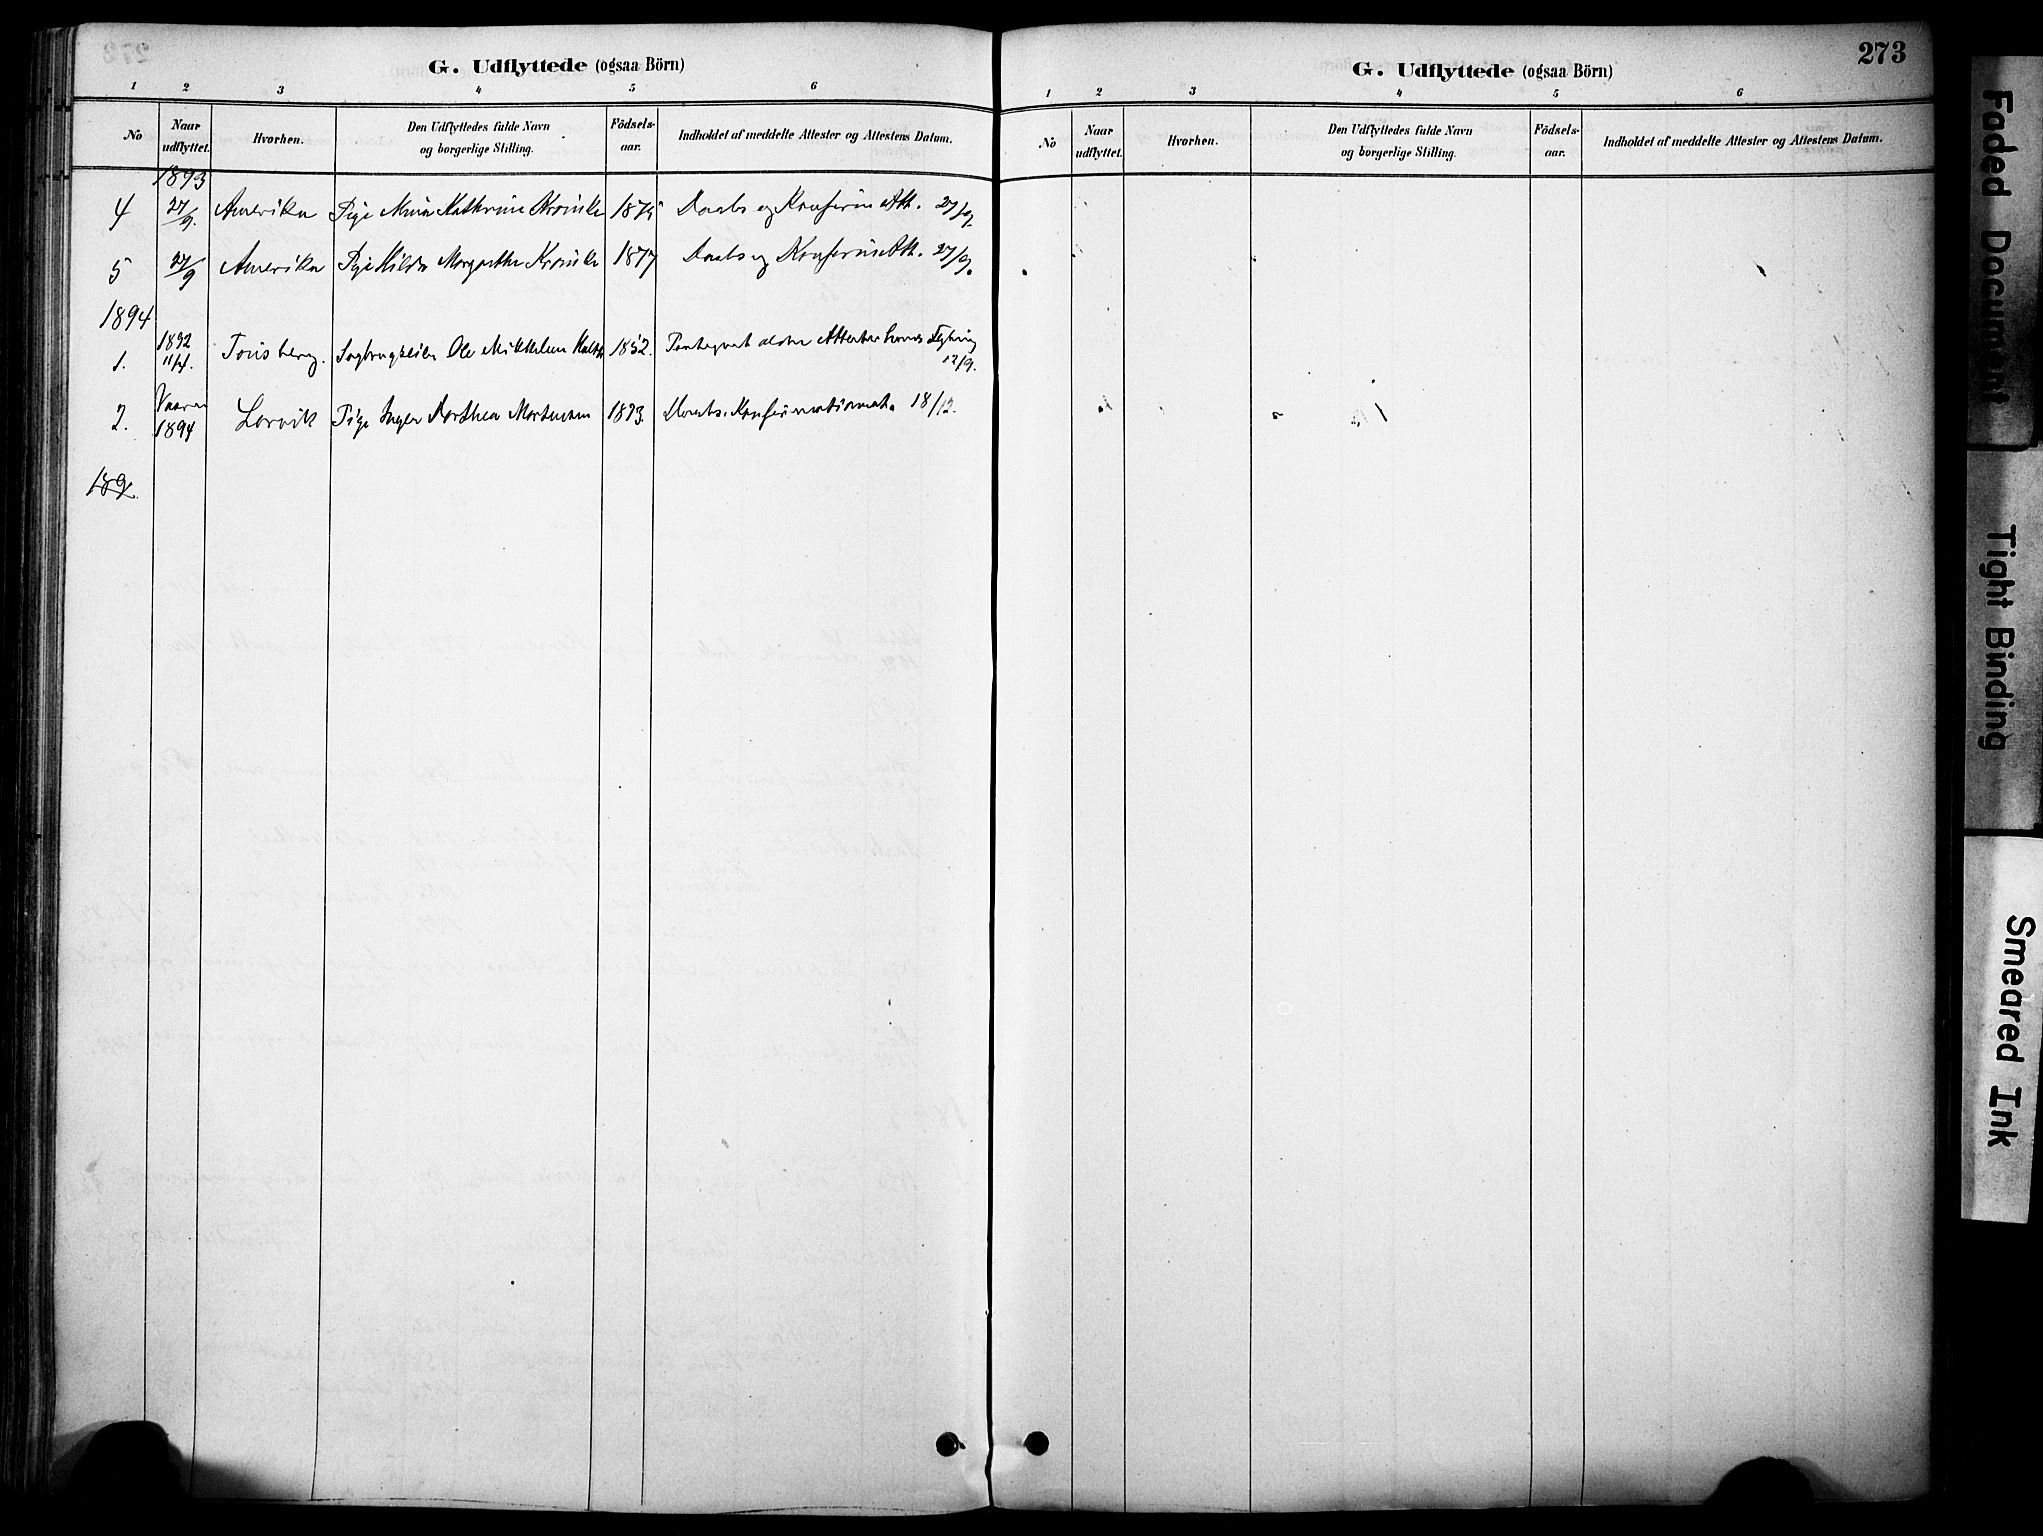 G. Udflyttede (ogsaa Börn)
1 2 3 4 5 6
No Naar udflyttet. Hvorhen. Den Udflyttedes fulde Navn og borgerlige Stilling. Födsels-aar. Indholdet af meddelte Attester og Attestens Datum.
1893
4 27/9. Amerika Pige Kathrine 1875 Daabs og Konfirm Att. 27/9.
5 27/9 Amerika Pige Hilda Margrethe 1877 Daabs og Konfirm Att. 27/9.
1894
1. 1892 11/4. Tønsberg. Ole Mikkelsen 1852. 12/9.
2. Vaaren 1894 Larvik Pige Inger Dorthea Mortensen 1873. Daabs. Konfirmationsat. 18/12.
189
273
G. Udflyttede (ogsaa Börn)
1 2 3 4 5 6
No Naar udflyttet. Hvorhen. Den Udflyttedes fulde Navn og borgerlige Stilling. Födsels-aar. Indholdet af meddelte Attester og Attestens Datum.
Faded Document
Tight Binding
Smeared Ink